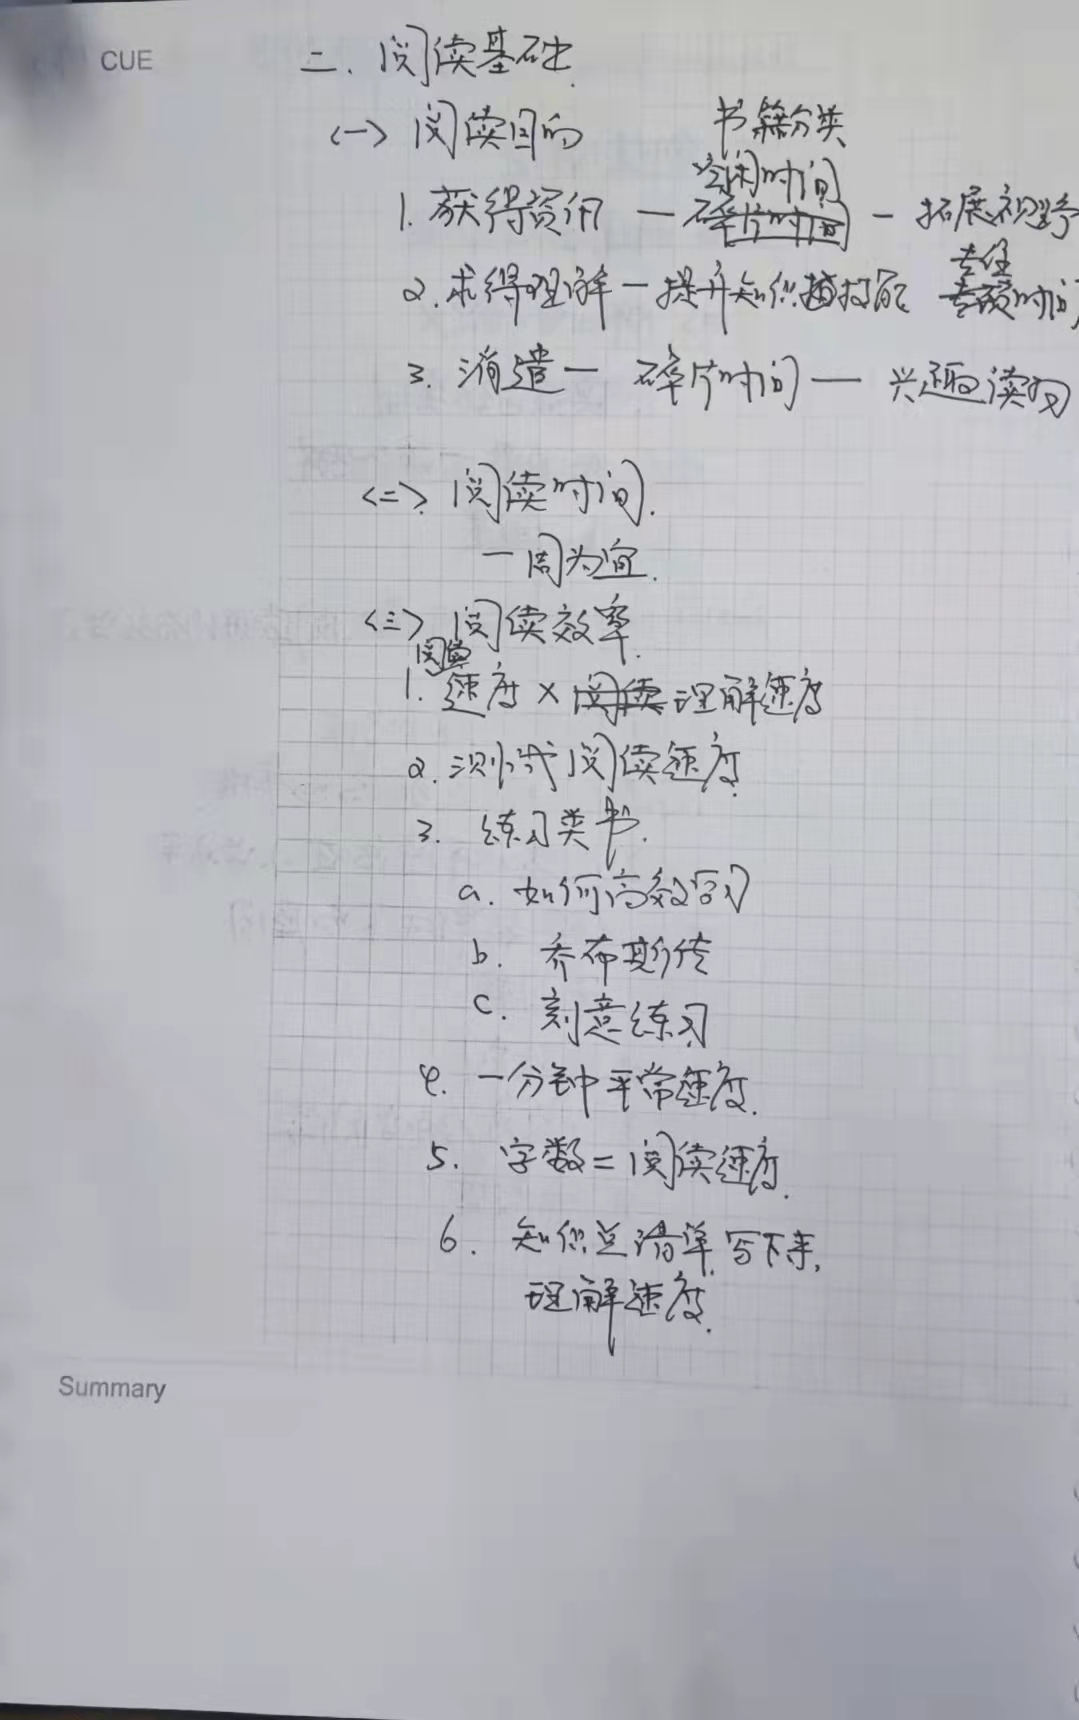 CUE
二、阅读基础
<一> 阅读目的 书籍分类
空闲时间
1. 获得资讯 — 碎片时间 — 拓展视野
专注
2. 求得理解 — 提升知识 时间
3. 消遣 — 碎片时间 — 兴趣读物
<二> 阅读时间.
一周为宜.
<三> 阅读效率.
1. 速度 × 阅读 理解速度
2. 测试阅读速度
3. 练习类书.
a. 如何高效学习
b. 乔布斯传
c. 刻意练习
4. 一分钟平常速度.
5. 字数=阅读速度.
6. 知识点清单, 写下来,
理解速度.
Summary